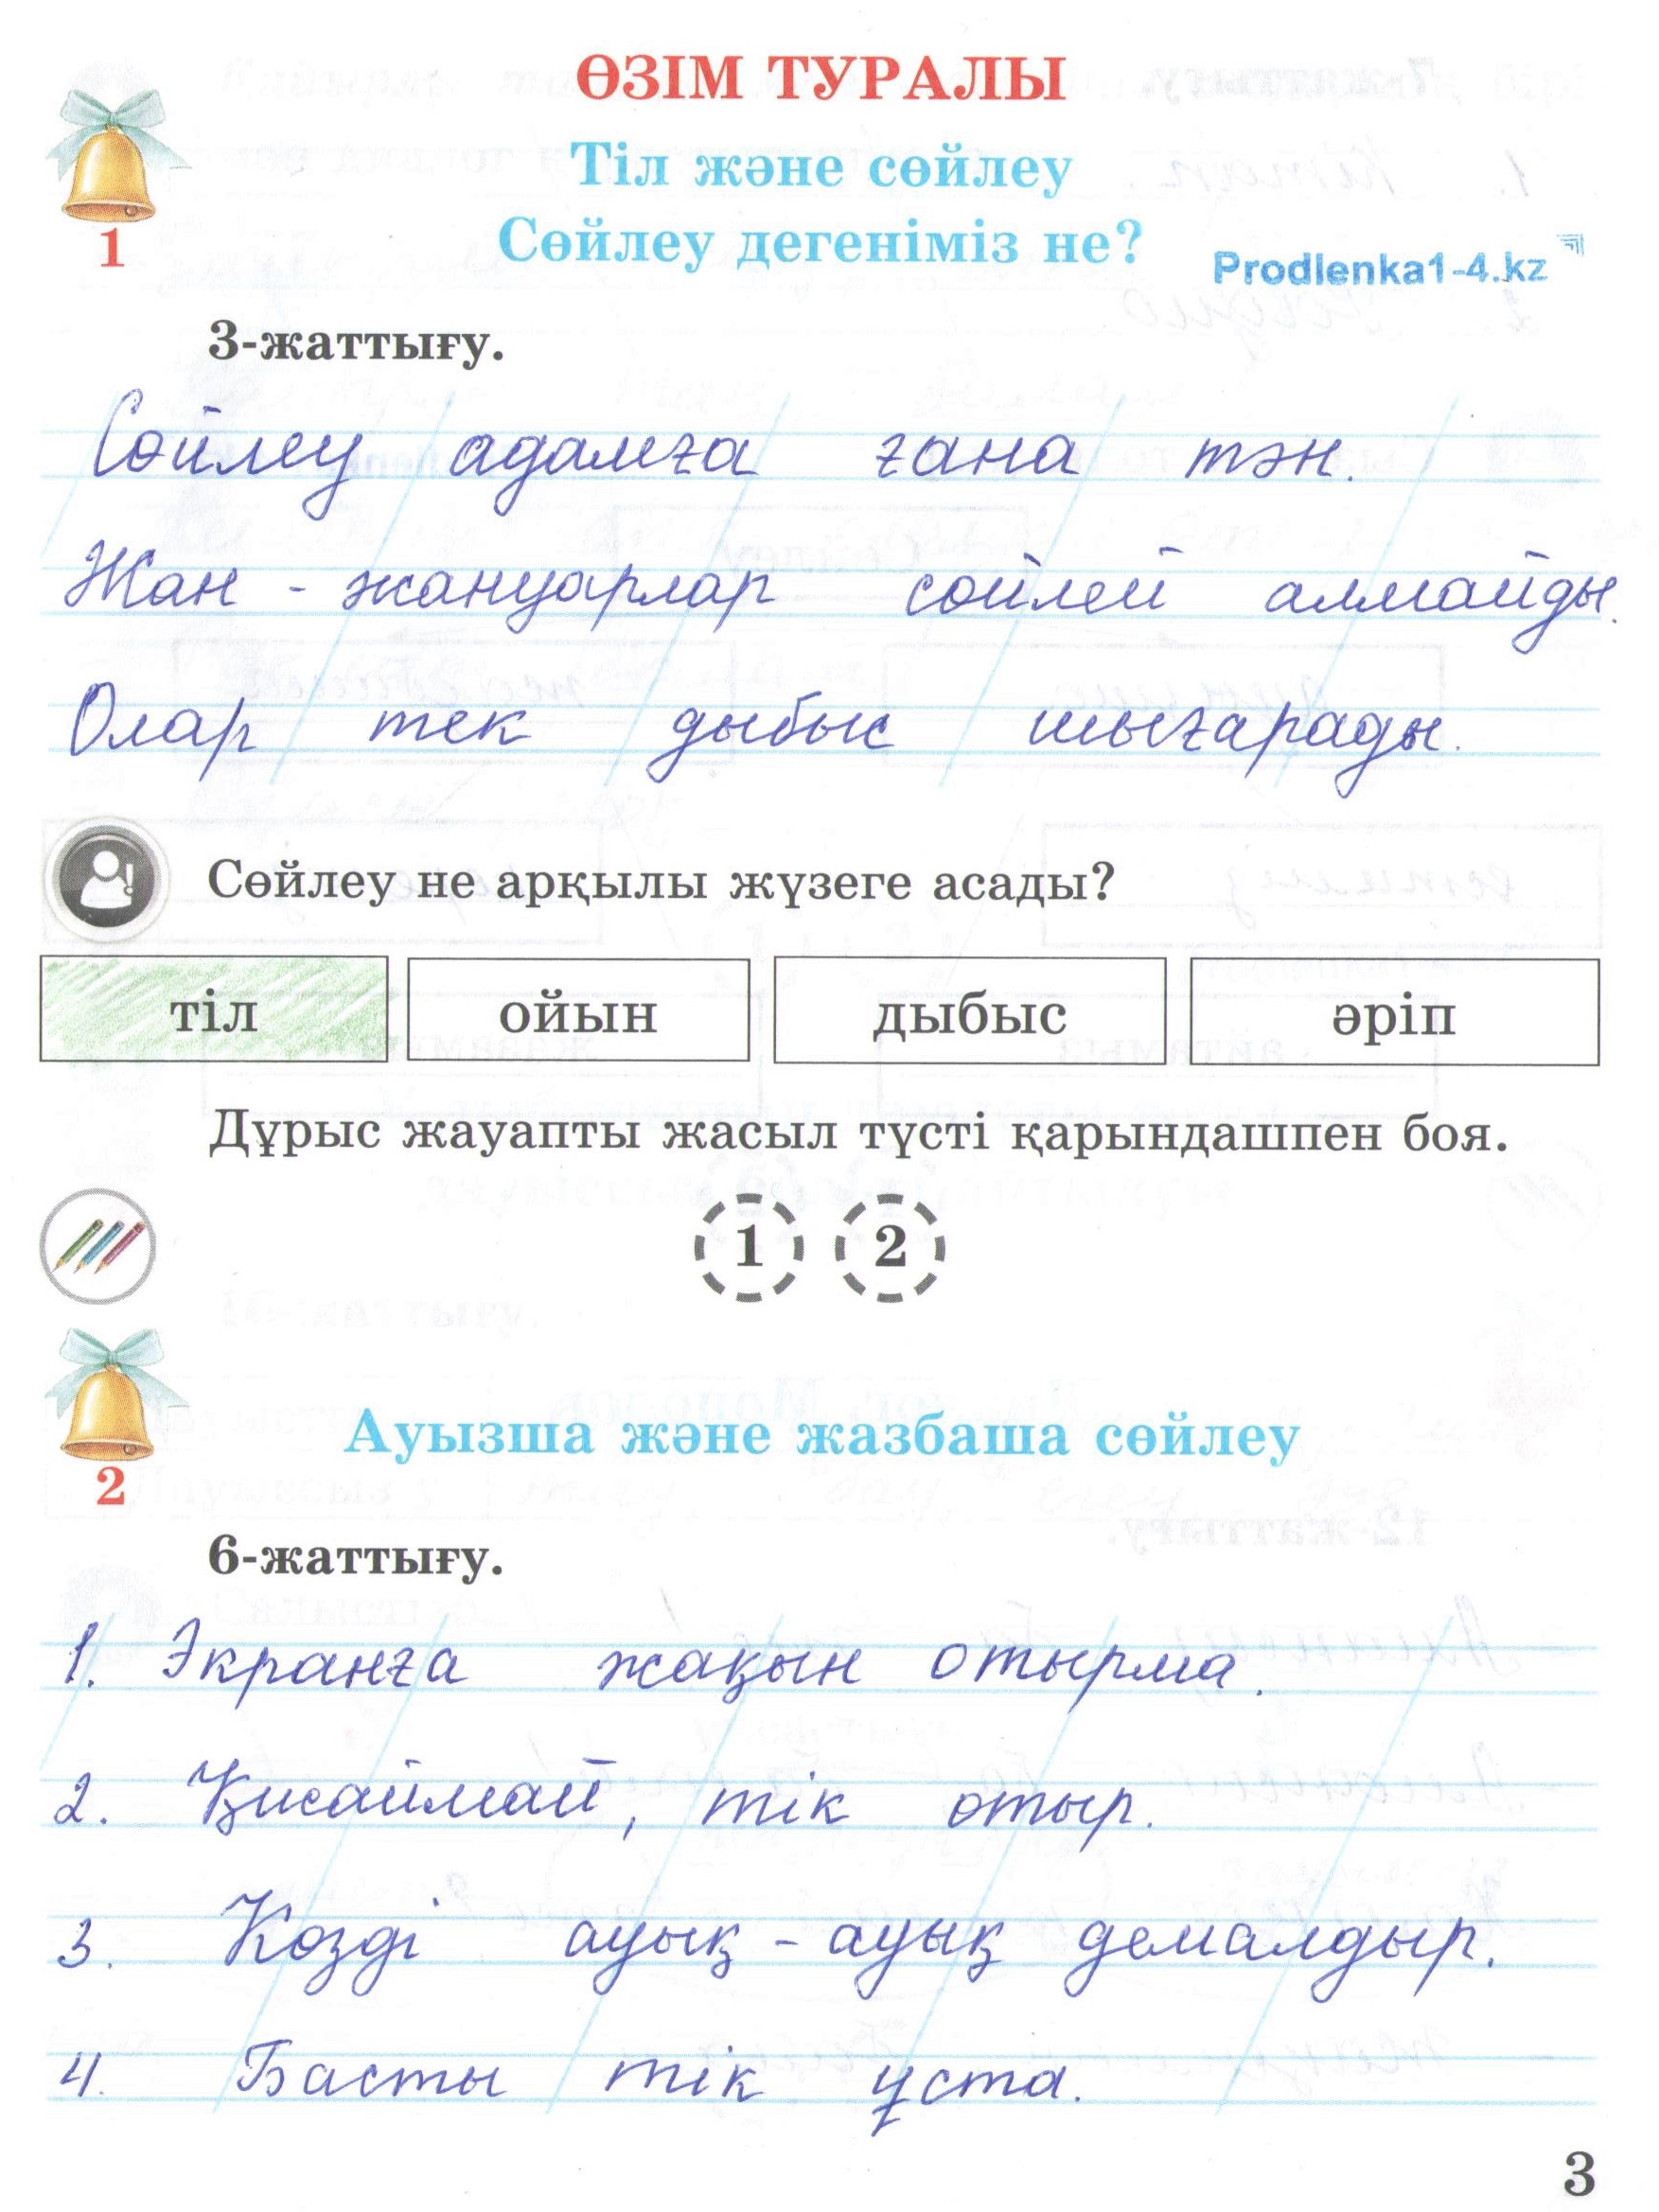 ӨЗІМ ТУРАЛЫ
Тіл және сөйлеу
1
Сөйлеу дегеніміз не?
Prodlenka1-4.kz
3-жаттығу.
Сөйлеу адамға ғана тән.
Жан - жануарлар сөйлей алмайды.
Олар тек дыбыс шығарады.
Сөйлеу не арқылы жүзеге асады?
тіл ойын дыбыс әріп
Дұрыс жауапты жасыл түсті қарындашпен боя.
1 2
Ауызша және жазбаша сөйлеу
2
6-жаттығу.
1. Экранға жақын отырма.
2. Қисаймай, тік отыр.
3. Көзді ауық - ауық демалдыр.
4. Басты тік ұста.
3